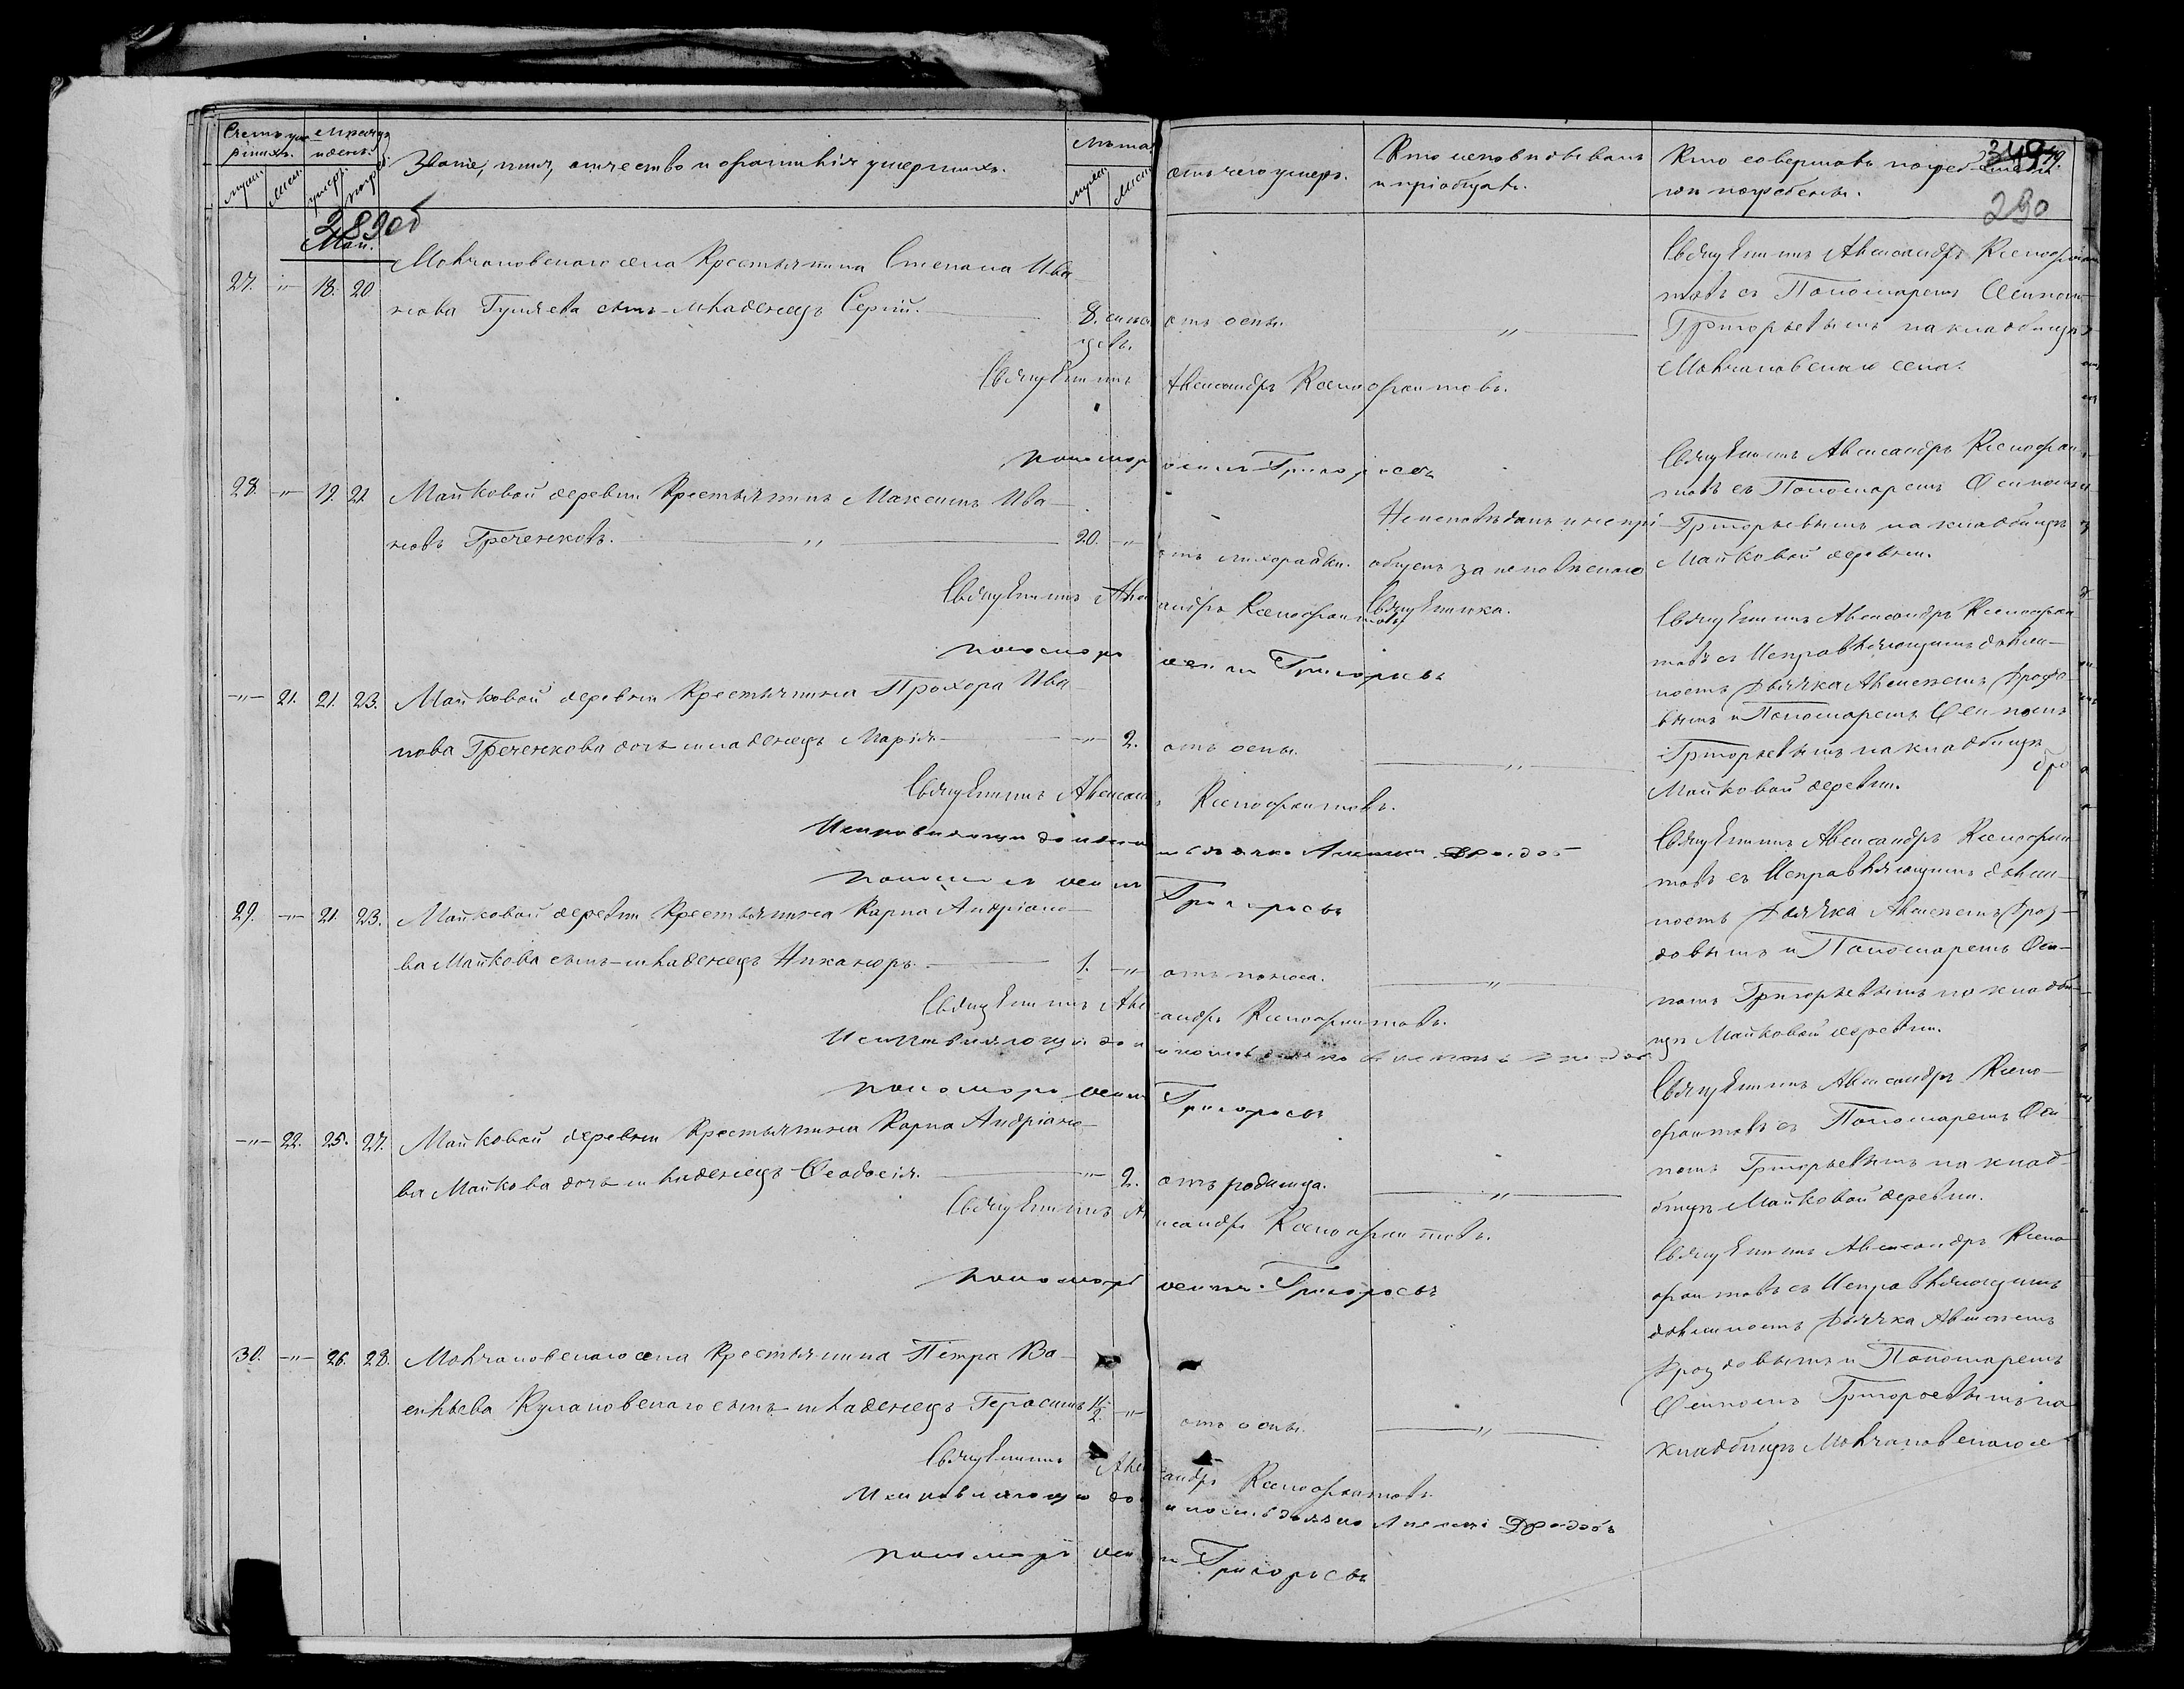 Счетъ умершихъ.
Мѣсяцъ и день.
Званіе, имя, отчество и фамилія умершихъ.
Лѣта
муж.
жен.
умер.
погреб.
муж.
жен.
отъ чего умеръ.
Кто исповѣдывалъ
и пріобщалъ.
Кто совершалъ погребеніе и
гдѣ погребены.
290
289об
Май.
27. -"- 18. 20.
Молчановскаго села Крестьянина Степана Ива-
нова Гуляева сынъ младенецъ Сергій.
8. мѣся
цевъ.
отъ оспы.
-"-
Священникъ Александръ Ксенофон
товъ съ Пономаремъ Осипомъ
Григорьевымъ на кладбищѣ
Молчановскаго села.
Священникъ Александръ Ксенофонтовъ.
пономарь осипъ Григорьевъ
28. -"- 19. 21
Майковой деревни Крестьянинъ Максимъ Ива-
новъ Греченковъ. -"- 20. -"-
отъ лихорадки.
Неисповѣданъ и непрі-
общенъ за
Священника.
Священникъ Александръ Ксенофон
товъ съ Пономаремъ Осипомъ
Григорьевымъ на кладбищѣ
Майковой деревни.
Священникъ Александръ Ксенофонтовъ
пономарь осипъ Григорьевъ
-"- 21. 21. 23.
Майковой деревни Крестьянина Прохора Ива-
нова Греченкова дочь младенецъ Марія. -"- 2.
отъ оспы.
-"-
Священникъ Александръ Ксенофон
товъ съ Исправляющимъ должн-
ность Дьячка Алексѣемъ Дроздо-
вымъ и Пономаремъ Осипомъ
Григорьевымъ на кладбищѣ
Майковой деревни.
Священникъ Александръ Ксенофонтовъ.
Исправляющій должность дьячка Алексѣй Дроздовъ
пономарь осипъ Григорьевъ
29. -"- 21. 23.
Майковой деревни Крестьянина Карпа Андріано-
ва Майкова сынъ младенецъ Никаноръ. 1. -"-
отъ поноса.
-"-
Священникъ Александръ Ксенофон
товъ съ Исправляющимъ долж-
ность Дьячка Алексѣемъ Дроз-
довымъ и Пономаремъ Оси-
помъ Григорьевымъ на кладби-
щѣ Майковой деревни.
Священникъ Александръ Ксенофонтовъ.
Исправляющій должность дьячка Алексѣй Дроздовъ
пономарь осипъ Григорьевъ
-"- 22. 25. 27.
Майковой деревни Крестьянина Карпа Андріано-
ва Майкова дочь младенецъ Феодосія. -"- 2.
отъ родимца.
-"-
Священникъ Александръ Ксено-
фонтовъ съ Пономаремъ Оси
помъ Григорьевымъ на клад-
бищѣ Майковой деревни.
Священникъ Александръ Ксенофонтовъ.
пономарь осипъ Григорьевъ
30. -"- 26. 28.
Молчановскаго села Крестьянина Петра Ва-
сильева Кулановскаго сынъ младенецъ Герасимъ 1/2. -"-
отъ оспы.
-"-
Священникъ Александръ Ксено
фонтовъ съ Исправляющимъ
должность Дьячка Алексѣемъ
Дроздовымъ и Пономаремъ
Осипомъ Григорьевымъ на
кладбищѣ Молчановскаго се
Священникъ Александръ Ксенофонтовъ.
Исправляющій должность дьячка Алексѣй Дроздовъ
пономарь осипъ Григорьевъ